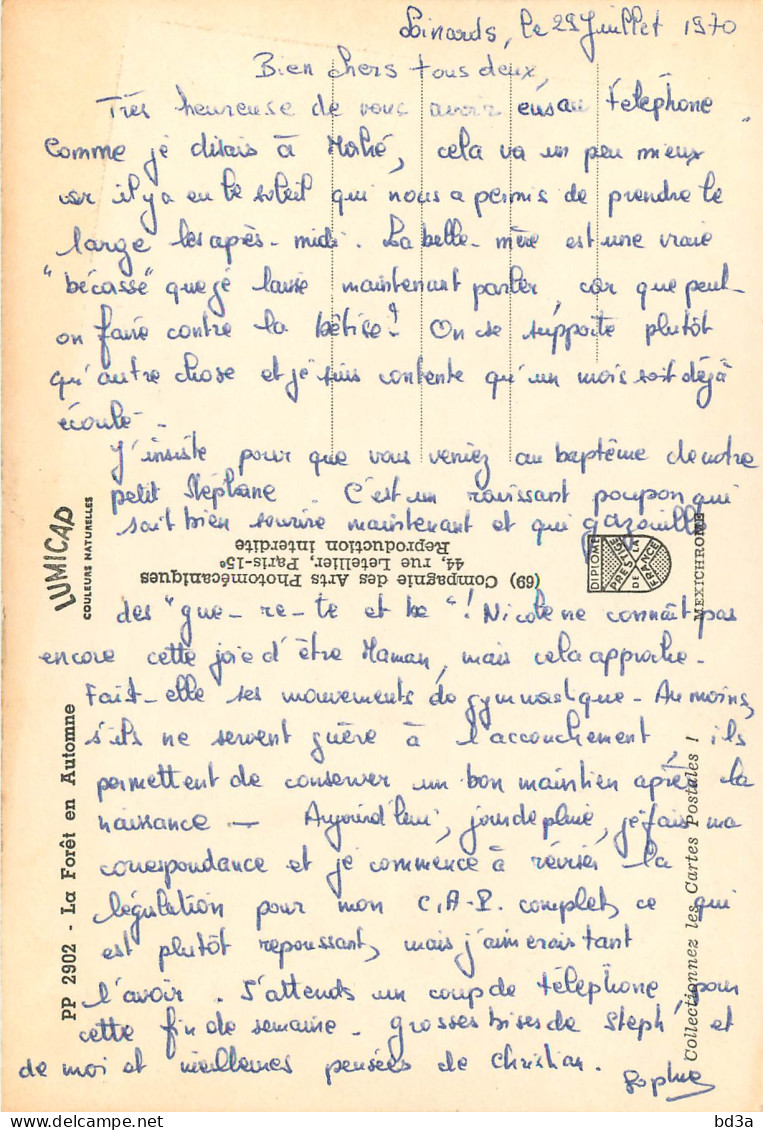 Linards, le 29 Juillet 1970
Bien chers tous deux,
Très heureuse de vous avoir eus au téléphone
Comme je disais à Maïté, cela va un peu mieux
car il y a eu le soleil qui nous a permis de prendre le
large les après-midi. La belle-mère est une vraie
"bécasse" que je laisse maintenant parler, car que peut-
on faire contre la bêtise! On se supporte plutôt
qu'autre chose et je suis contente qu'un mois soit déjà
écoulé.
J'insiste pour que vous veniez au baptême de notre
petit Stéphane. C'est un ravissant poupon qui
sait bien sourire maintenant et qui gazouille
des "gue-re-te et be"! Nicole ne connaît pas
encore cette joie d'être Maman, mais cela approche.
Fait-elle ses mouvements de gymnastique. Au moins,
s'ils ne servent guère à l'accouchement, ils
permettent de conserver un bon maintien après la
naissance - Aujourd'hui, jour de pluie, je fais ma
correspondance et je commence à réviser la
législation pour mon C.A.P. complet, ce qui
est plutôt repoussant, mais j'aimerais tant
l'avoir. J'attends un coup de téléphone pour
cette fin de semaine. grosses bises de Steph' et
de moi et meilleures pensées de Christian.
Sophie
LUMICAP
COULEURS NATURELLES
PP 2902 - La Forêt en Automne
(69) Compagnie des Arts Photomécaniques
44, rue Letellier, Paris-15e
Reproduction interdite
DIPLOME
PRESTIGE
DE LA
FRANCE
MEXICHROME
Collectionnez les Cartes Postales !
bd3a